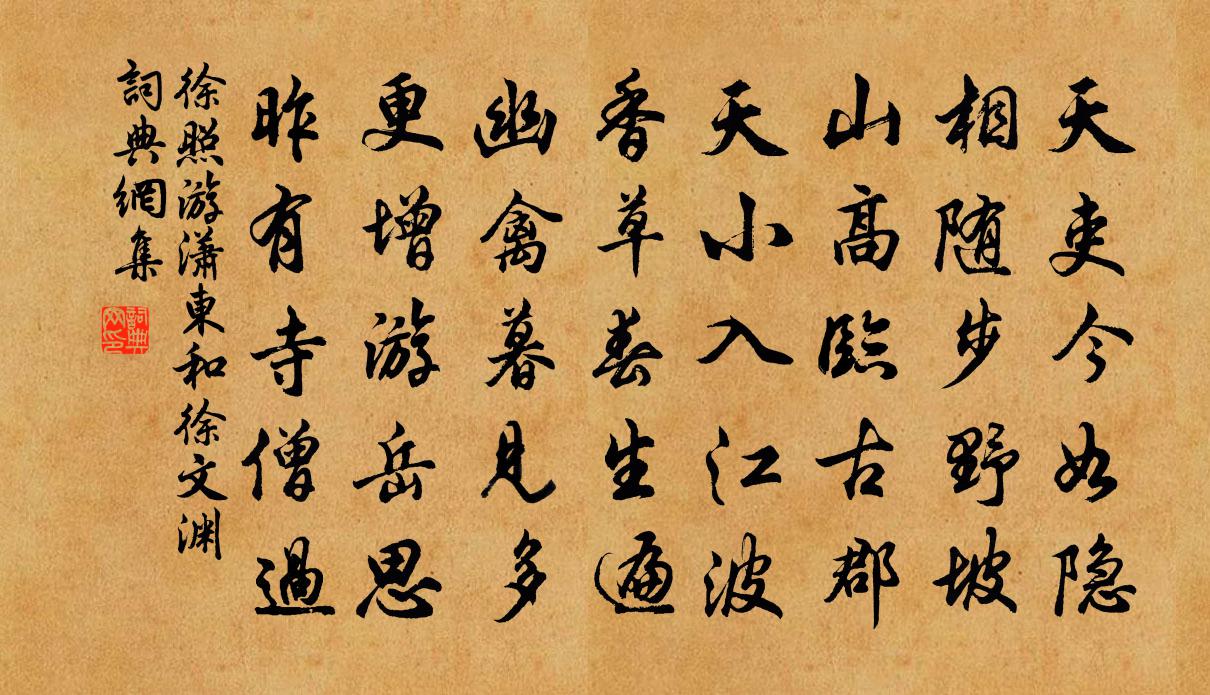 天吏今如隐
相随步野坡
山高臨古郡
天小入江波
香草春生遍
幽禽暮見多
更增游岳思
昨有寺僧過
徐照游瀟東和徐文渊
詞典網集
詞典
网印